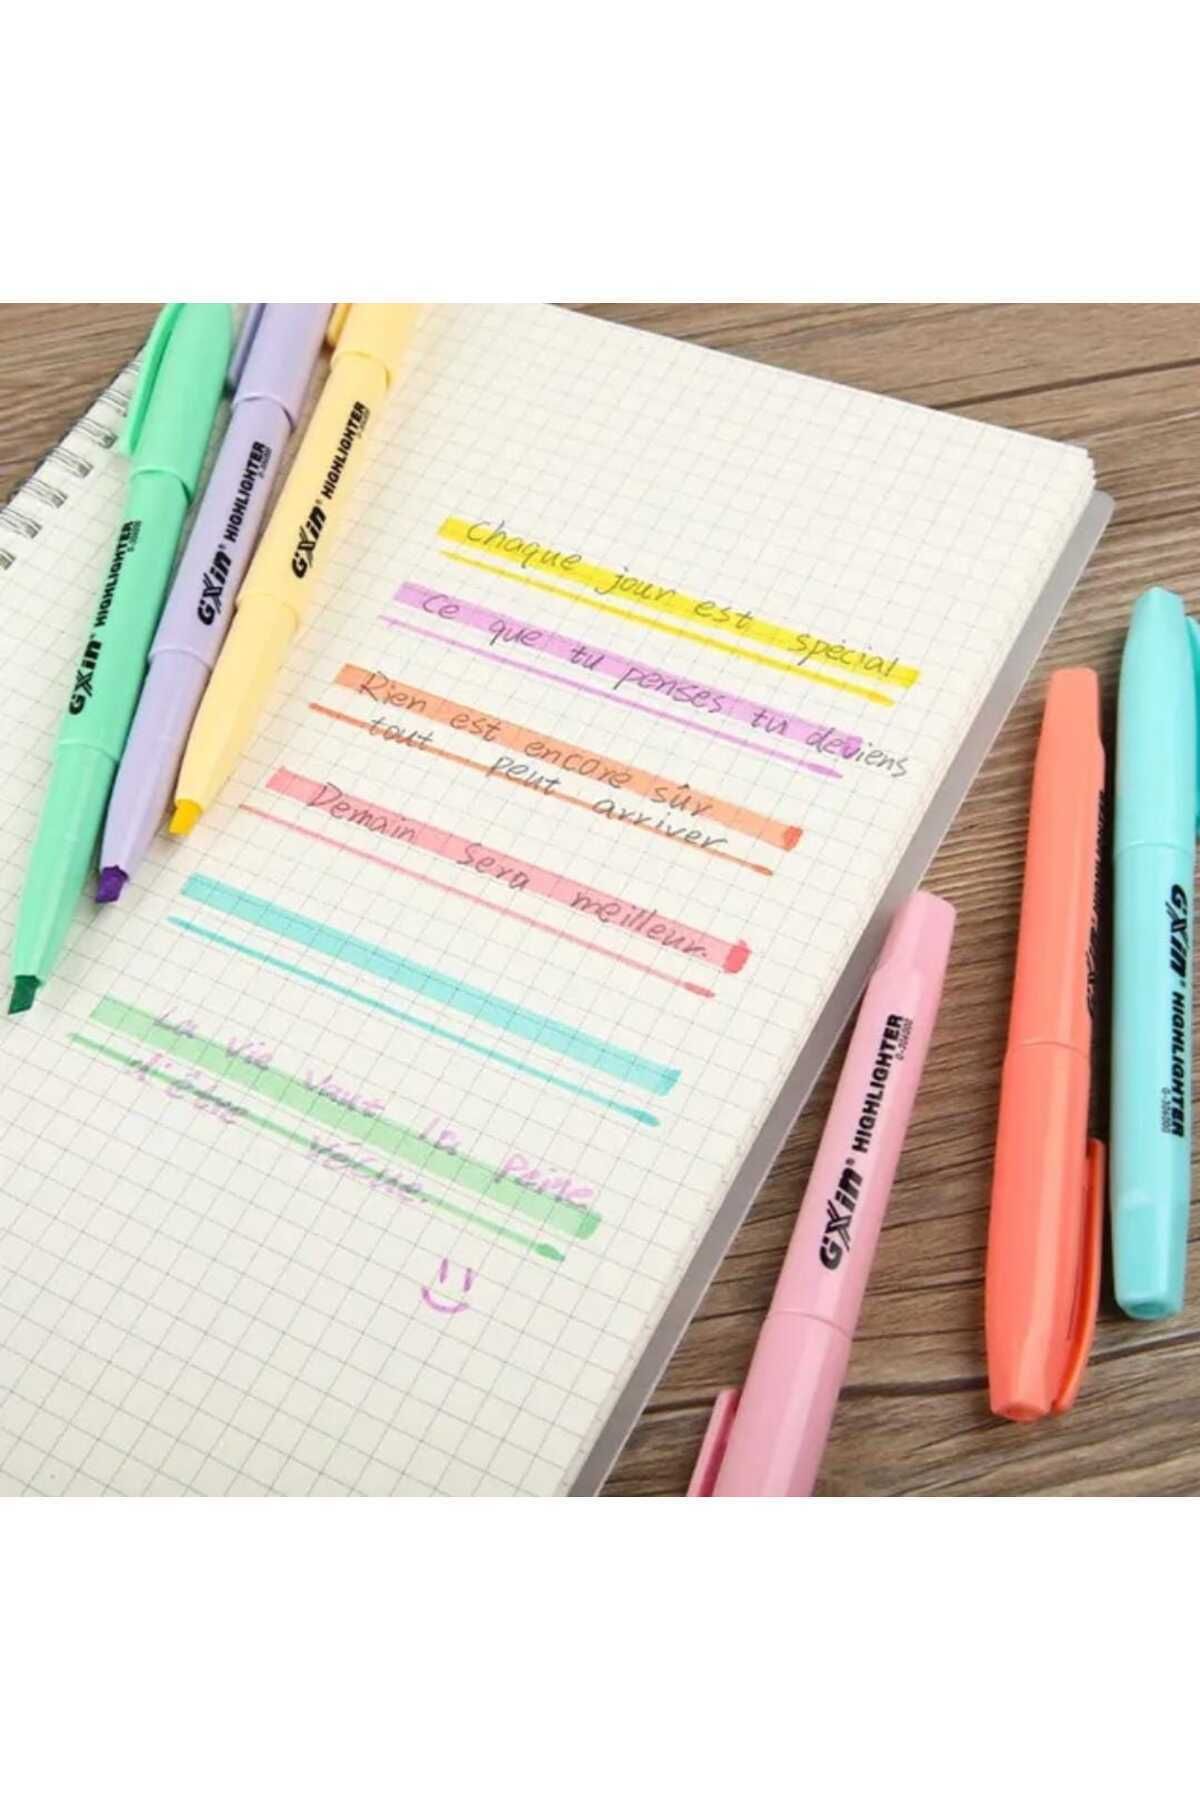 GXin® HIGHLIGHTER
0-304000
GXin® HIGHLIGHTER
0-304000
GXin® HIGHLIGHTER
0-304000
Chaque jour est spécial
Ce que tu penses tu deviens
Rien est encore sûr
tout peut arriver
Demain Sera meilleur.
La vie vaut la peine
d'être vécue.
GXin® HIGHLIGHTER
0-304000
GXin® HIGHLIGHTER
0-304000